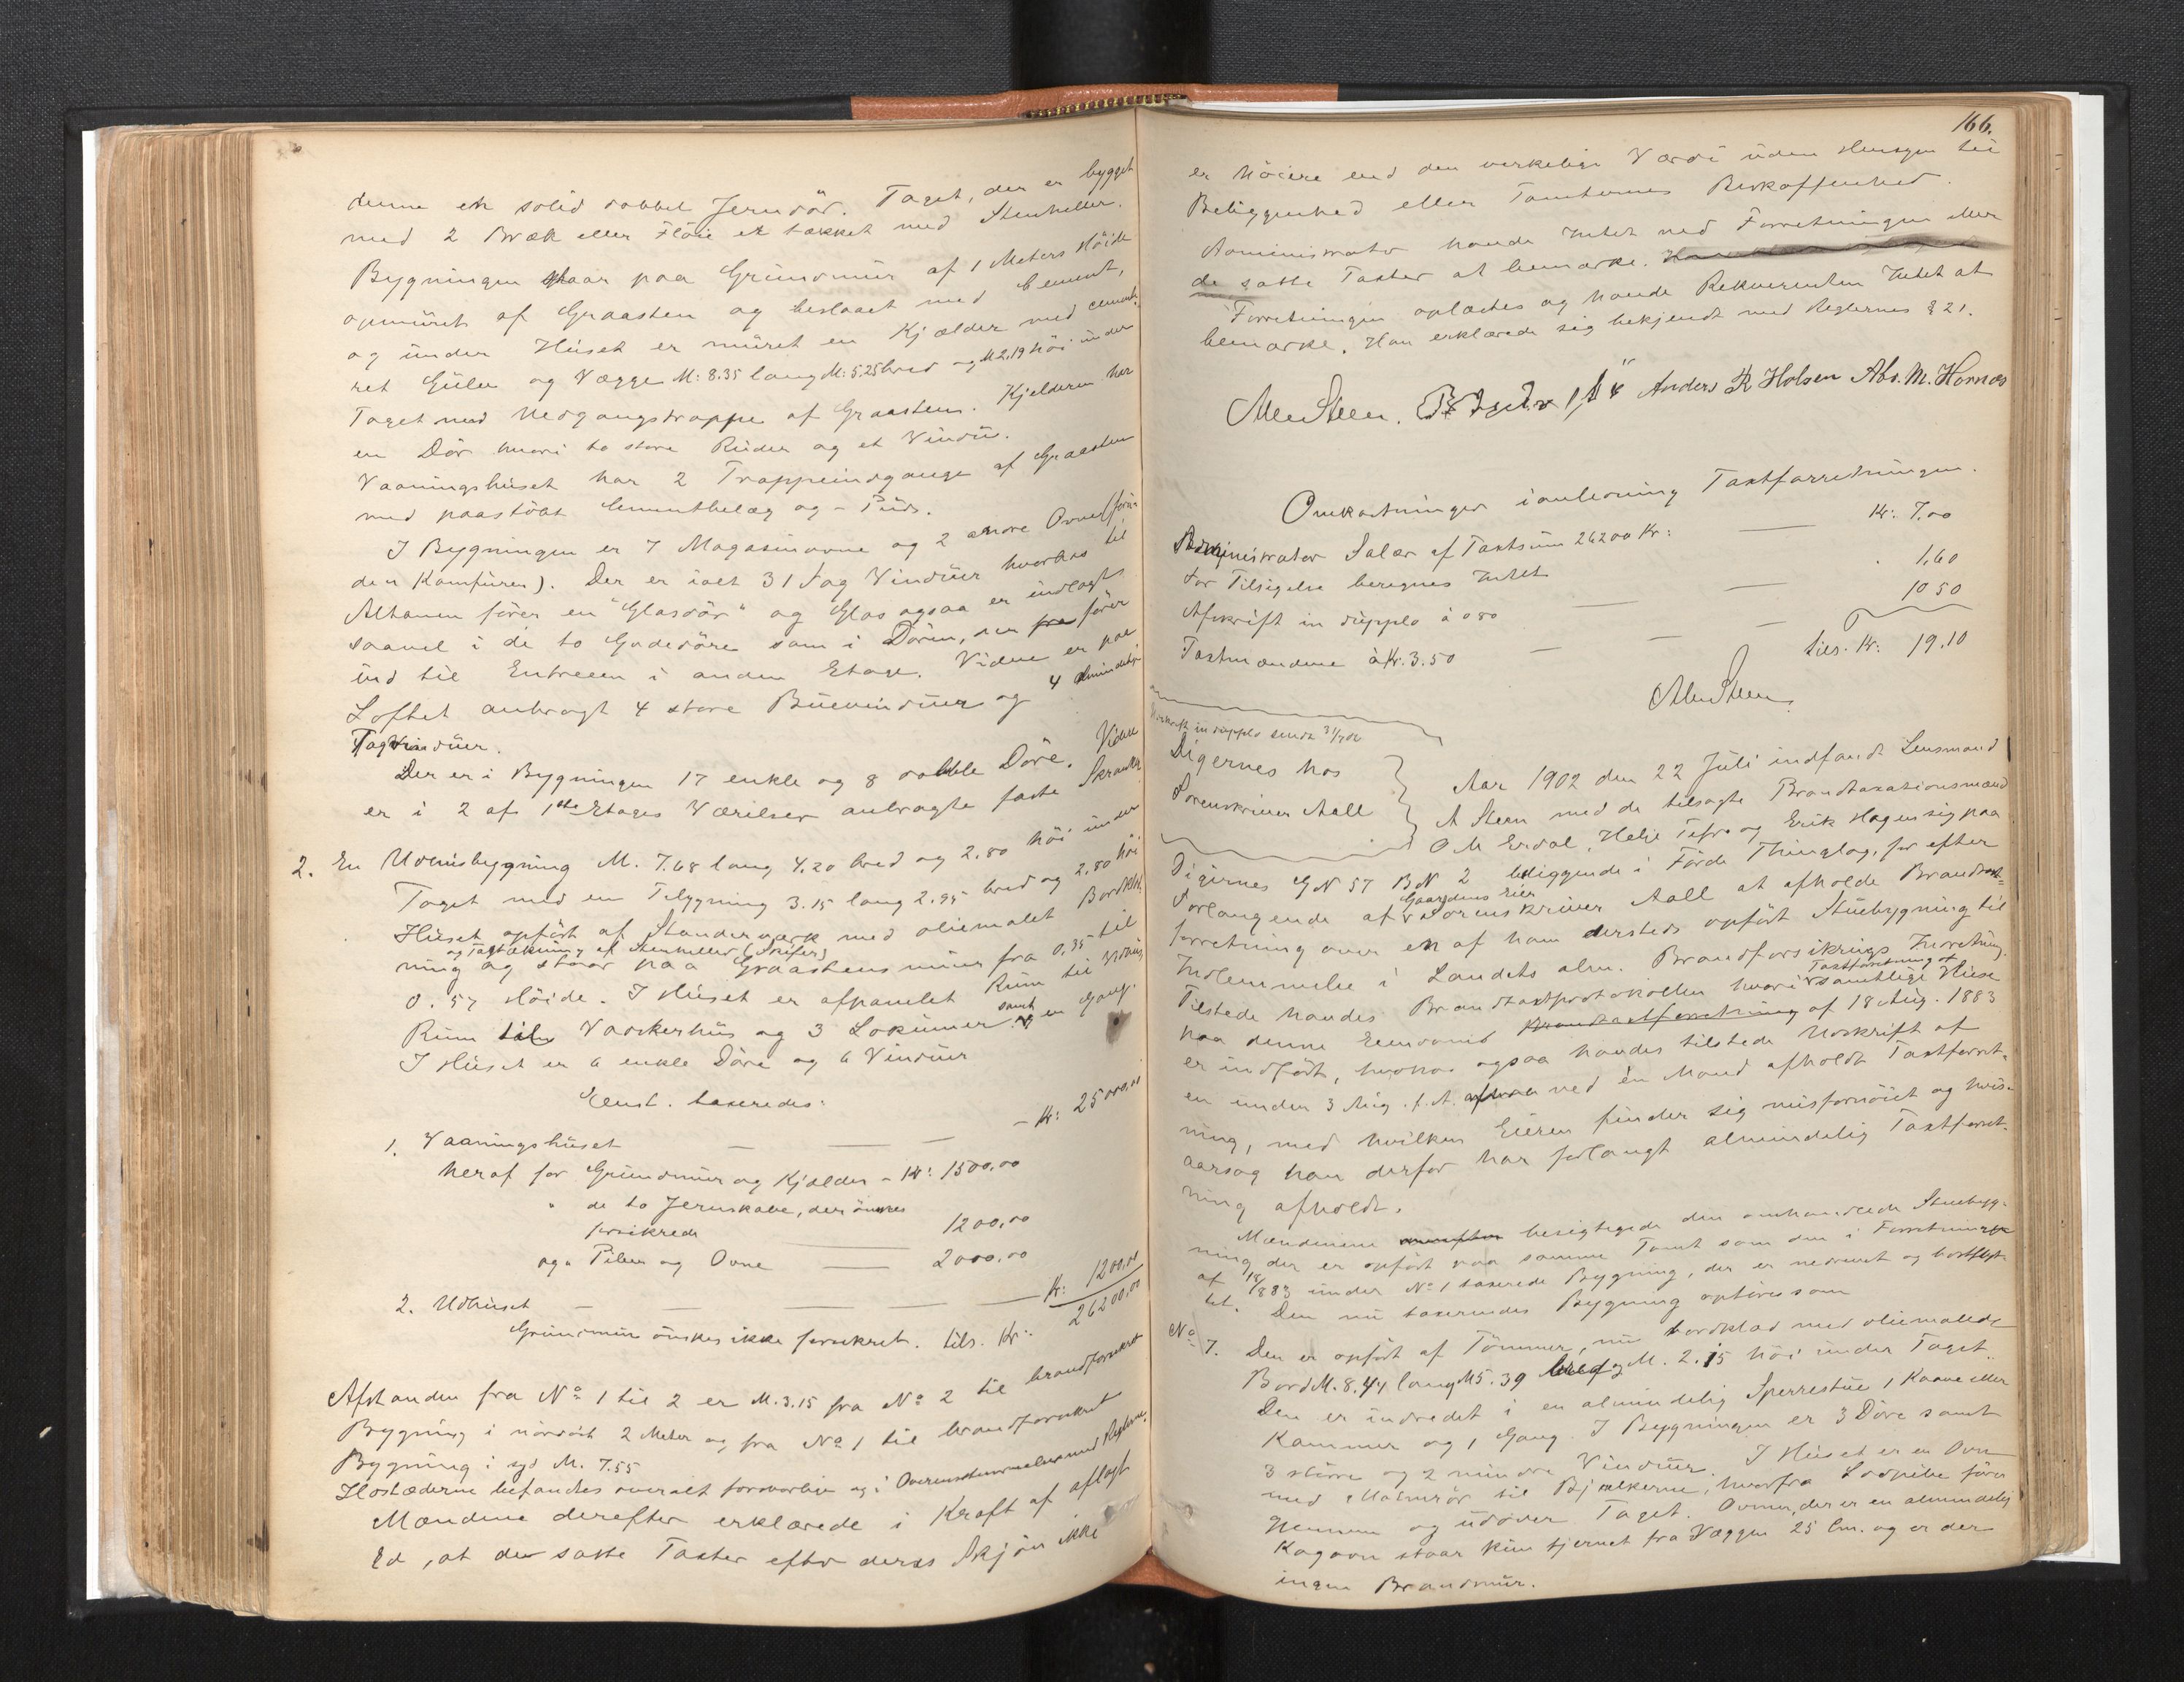 denne en solid dobbel Jerndör. Taget, der er bygget
med 2 Bræk eller Flöie er tækket med Stenheller.
Bygningen staar paa Grundmur af 1 Meters Höide
opmuret af Graasten og beslaaet med Cement,
og under Huset er muret en Kjælder med cemente-
ret Gulv og Vægge M: 8.35 lang M: 5.25 bred og M 2.19 höi under
Taget med Nedgangstrappe af Graasten. Kjelderen har
en Dör hvori to store Ruder og et Vindu.
Vaaningshuset har 2 Trappeindgange af Graasten
med paastöbt Cementbelæg og - Puds.
I Bygningen er 7 Magasinovne og 2 andre Ovne (foru-
den Komfuren). Der er ialt 31 Fag Vinduer hvorhos til
Altanen förer en "Glasdör" og Glas ogsaa er indlagt
saavel i de to Gadedöre som i Dören, der fra förer
ind til Entreen i anden Etage. Videre er paa
Loftet anbragt 4 store Buevinduer og 4 almindeli
Tagvinduer.
Der er i Bygningen 17 enkle og 8 doble Döre. Videre
er i 2 af 1ste Etages Værelser anbragte faste Skranker
2. En Udhusbygning M. 7.68 lang 4.20 bred og 2.80 höi under
Taget med en Tilbygning 3.15 lang 2.95 bred og 2.80 höi
Huset opfört af Standerværk med oliemalet Bordklæd
og Tagtækning af Stenheller (Skifer)
ning og staar paa Graastensmur fra 0.35 til
0.57 Höide. I Huset er afpanelet Rum til Vedhus
Rum til Vaskerhus og 3 Lokummer samt en Gang.
I Huset er 6 enkle Döre og 6 Vinduer
Eiend. taxeredes:
1. Vaaningshuset — — — Kr: 25000,00
heraf for Grundmur og Kjælder - Kr: 1500,00
" de to Jernskabe, der önskes
forsikrede 1200,00
og " Piber og Ovne — 2000,00
2. Udhuset — — — — Kr: 1200,00
Grundmur önskes ikke forsikret. tils. Kr: 26200,00
Afstanden fra No 1 til 2 er M. 3.15 fra No 2 til brandforsikret
Bygning i nordöst 2 Meter og fra No 1 til brandforsikret
Bygning i syd M. 7.55
Ildstæderne befandtes overalt forsvarlige og i Overensstemmelse med Reglerne.
Mændene derefter erklærede i Kraft af aflagt
Ed, at de satte Taxter efter deres Skjön ikke
166.
er höiere end den virkelige Værdi uden Hensyn til
Beliggenhed eller Tomternes Beskaffenhed.
Administrator havde Intet ved Forretningen eller
de satte Taxter at bemærke.
Forretningen oplæstes og havde Rekvirenten Intet at
bemærke. Han erklærede sig bekjendt med Reglernes § 21.
Alb Steen. Anders R Holsen Abr. M. Hornæs
Omkostninger i anledning Taxtforretningen.
Administrator Salær af Taxtsum 26200 Kr: — Kr: 7.00
For Tilsigelse beregnes Intet
Afskrift in duplo á 0 80 — — 1,60
Taxtmændene á Kr. 3.50 — — — 10 50
tils. Kr: 19.10
Alb Steen
Udskrift in duplo sendt 31/7 02
Digernes hos
Sorenskriver Aall
Aar 1902 den 22 Juli indfandt Lensmand
A Steen med de tilsagte Brandtaxationsmænd
O M Erdal, Helje Tefre og Erik Hagen sig paa
Digernes GN 57 BN 2 beliggende i Förde Thinglag, for efter
Gaardens Eier
Forlangende af Sorenskriver Aall at afholde Brandtaxt-
forretning over en af ham dersteds opfört Stuebygning til
Indlemmelse i Landets alm. Brandforsikrings Indretning.
Taxtforretning af
Tilstede havdes Brandtaxtprotokollen hvori samtlige Huse
paa denne Eiendoms Brandtaxtforretning af 18 Aug. 1883
er indfört, hvorhos ogsaa havdes tilstede Udskrift af
en under 3 Aug. f. A. ved én Mand afholdt Taxtforret-
ning, med hvilken Eieren finder sig misfornöiet og hvis-
aarsag han derfor har forlangt almindelig Taxtforret-
ning afholdt.
Mændene besigtigede den omhandlede Stuebyg-
ning der er opfört paa samme Tomt som den i Forretningen
af 18/8 83 under No 1 taxerede Bygning, der er nedrevet og bortflyt-
tet. Den nu taxerendes Bygning opföres som
No 7. Den er opfört af Tömmer, nu bordklæd med oliemalede
Bord M. 8.44 lang M 5.39 bred og M. 2.15 höi under Taget.
Den er indredet i en almindelig Sperrestue 1 Kaave eller
Kammer og 1 Gang. I Bygningen er 3 Döre samt
3 större og 2 mindre Vinduer. I Huset er en Ovn
med Malmrör til Bjælkerne, hvorfra Lodpibe förer
gjennem og udover Taget. Ovnen, der er en almindelig
Kogeovn staar kun fjernet fra Væggen 25 Cm. og er der
ingen Brandmur.